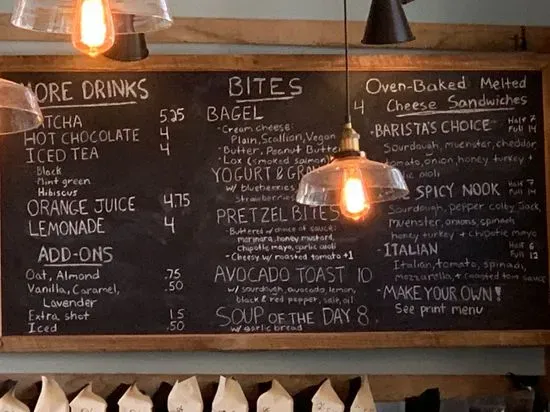 MORE DRINKS
MATCHA 5.25
HOT CHOCOLATE 4
ICED TEA 4
-Black
-Mint green
-Hibiscus
ORANGE JUICE 4.75
LEMONADE 4
ADD-ONS
Oat, Almond .75
Vanilla, Caramel, .50
Lavender
Extra shot 1.5
Iced .50
BITES
BAGEL 4
-Cream cheese:
Plain, Scallion, Vegan
-Butter, Peanut Butter
-Lox (smoked salmon
YOGURT & GRA
w/ blueberries
strawberries
PRETZEL BITES
-Buttered w/ choice of sauce:
marinara, honey mustard,
chipotle mayo, garlic aioli
-Cheesy w/ roasted tomato +1
AVOCADO TOAST 10
w/ sourdough, avocado, lemon,
black & red pepper, salt, oil
SOUP OF THE DAY 8
w/ garlic bread
Oven-Baked Melted
Cheese Sandwiches
-BARISTA'S CHOICE Half 7 Full 14
Sourdough, muenster, cheddar,
tomato, onion, honey turkey +
aioli
SPICY NOOK Half 7 Full 14
Sourdough, pepper colby jack,
muenster, onions, spinach
honey turkey + chipotle mayo
-ITALIAN Half 6 Full 12
Italian, tomato, spinach,
mozzarella, + roasted tom sauce
-MAKE YOUR OWN!
See print menu